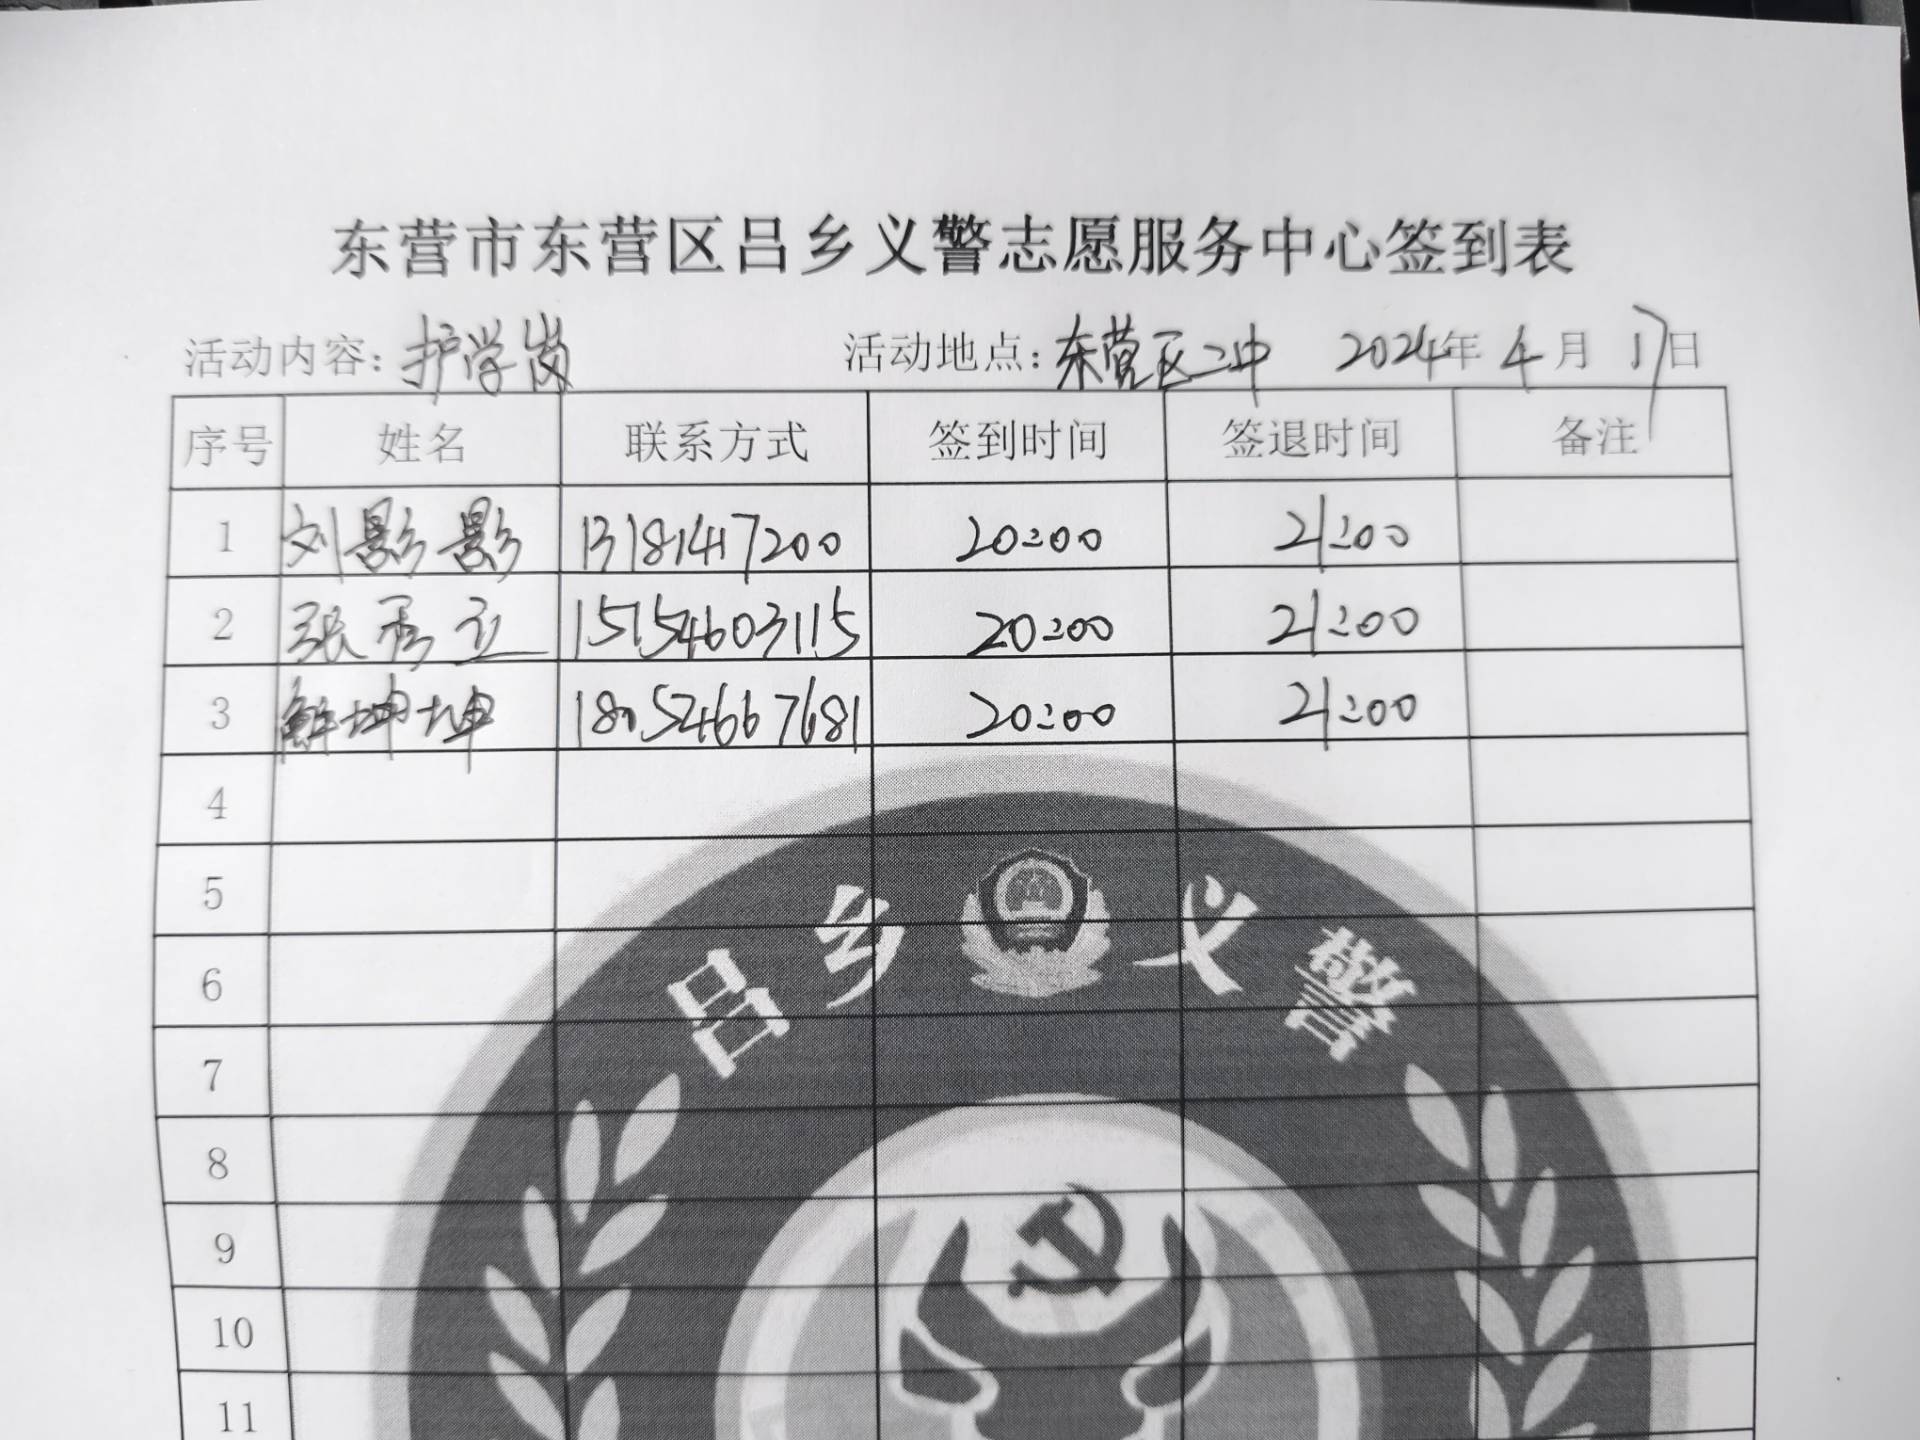 东营市东营区吕乡义警志愿服务中心签到表
活动内容：护学岗 活动地点：东营区二中 2024年 4月 17日
序号 姓名 联系方式 签到时间 签退时间 备注
1 刘影影 13181417200 20:00 21:00
2 张秀立 15154603115 20:00 21:00
3 解坤坤 18054667681 20:00 21:00
4
5
吕乡义警
6
7
8
9
10
11